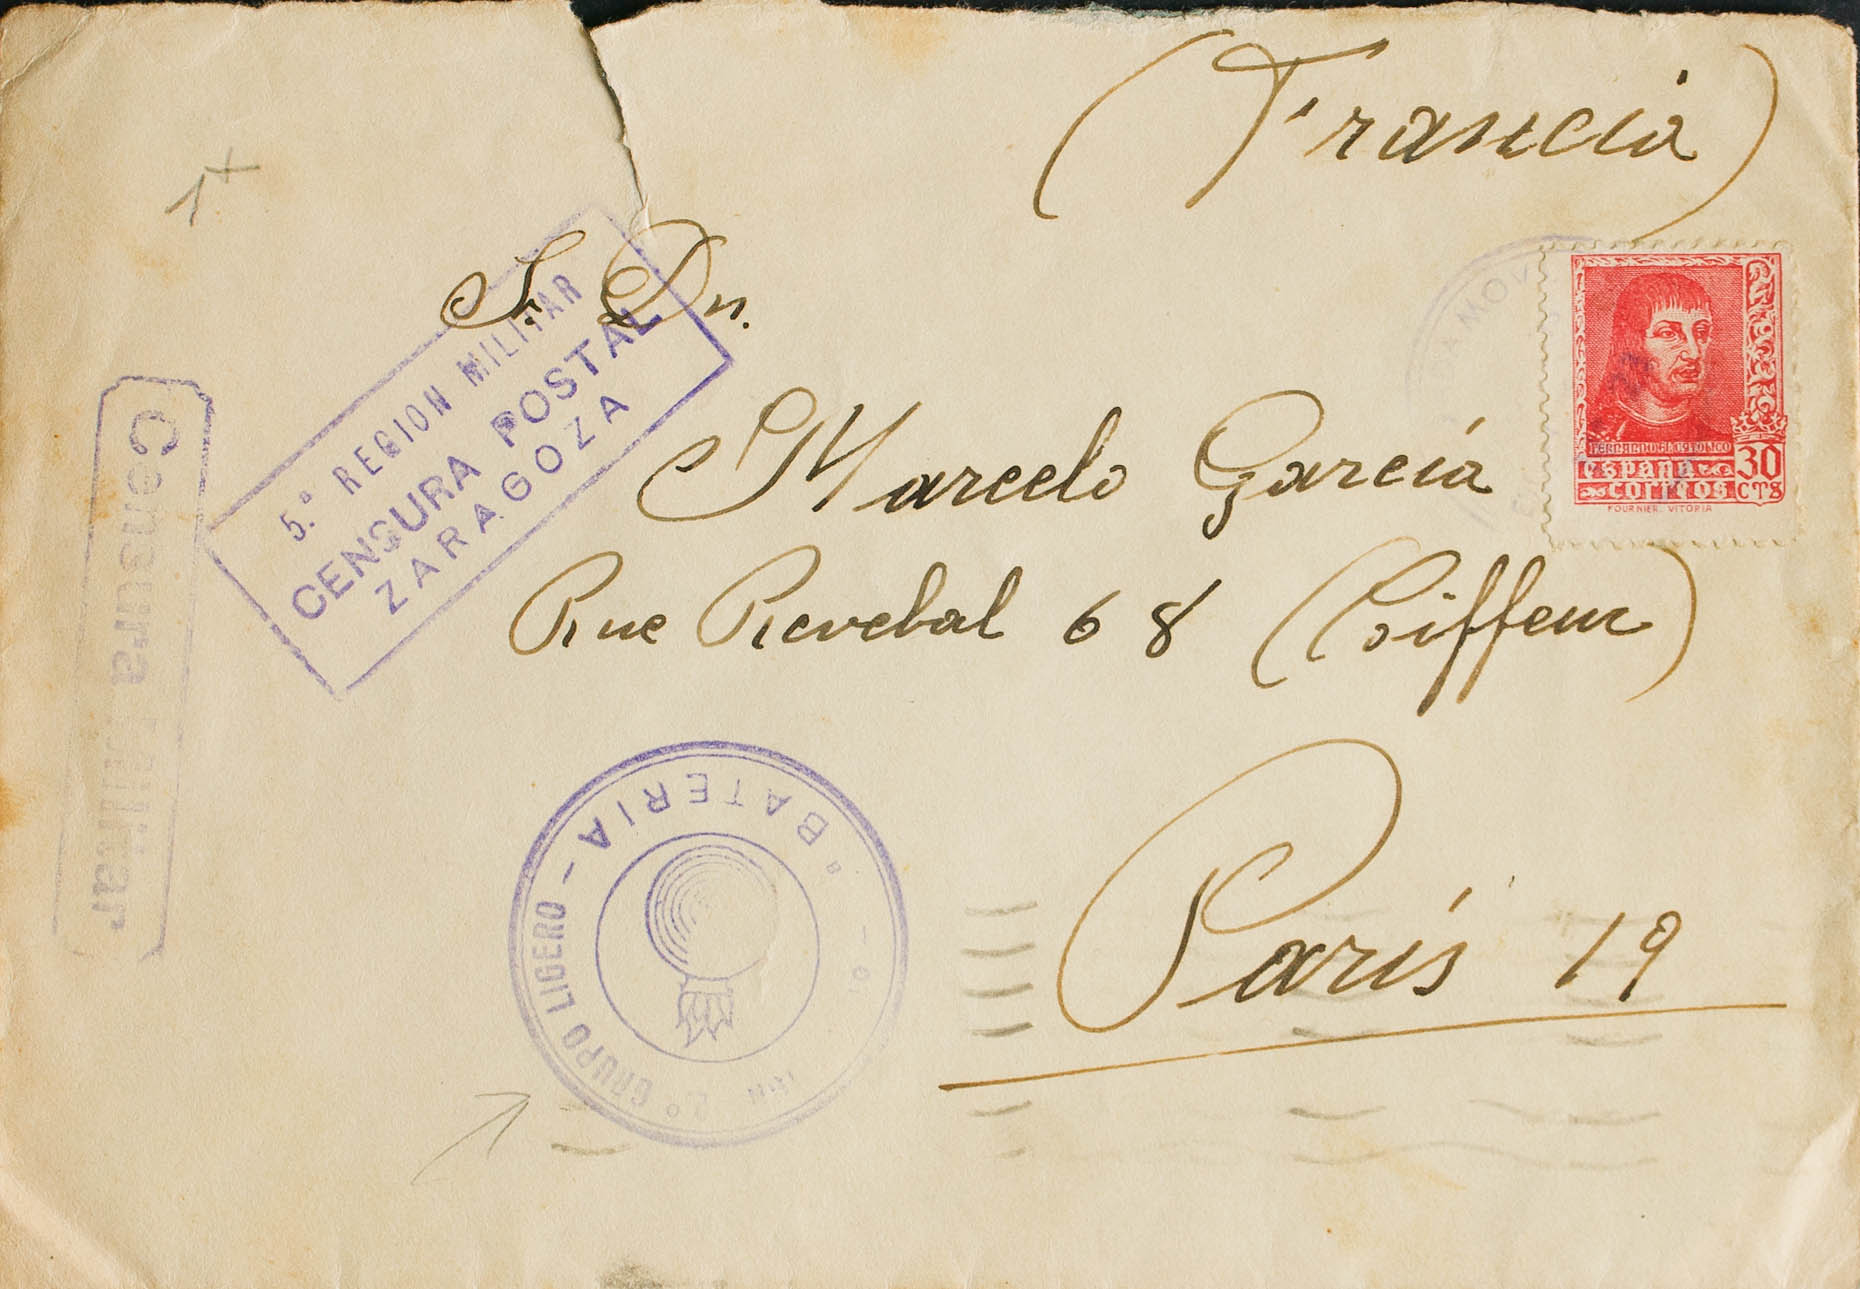 (Francia)
1+
S. Dn.
Marcelo García
Rue Revebal 68 (Coiffeur)
París 19
5.ª REGION MILITAR
CENSURA POSTAL
ZARAGOZA
Censura Militar
BATERIA - 2.º GRUPO LIGERO -
DA MOV
FERNANDO EL CATOLICO
ESPAÑA 30
CORREOS CTS
FOURNIER. VITORIA